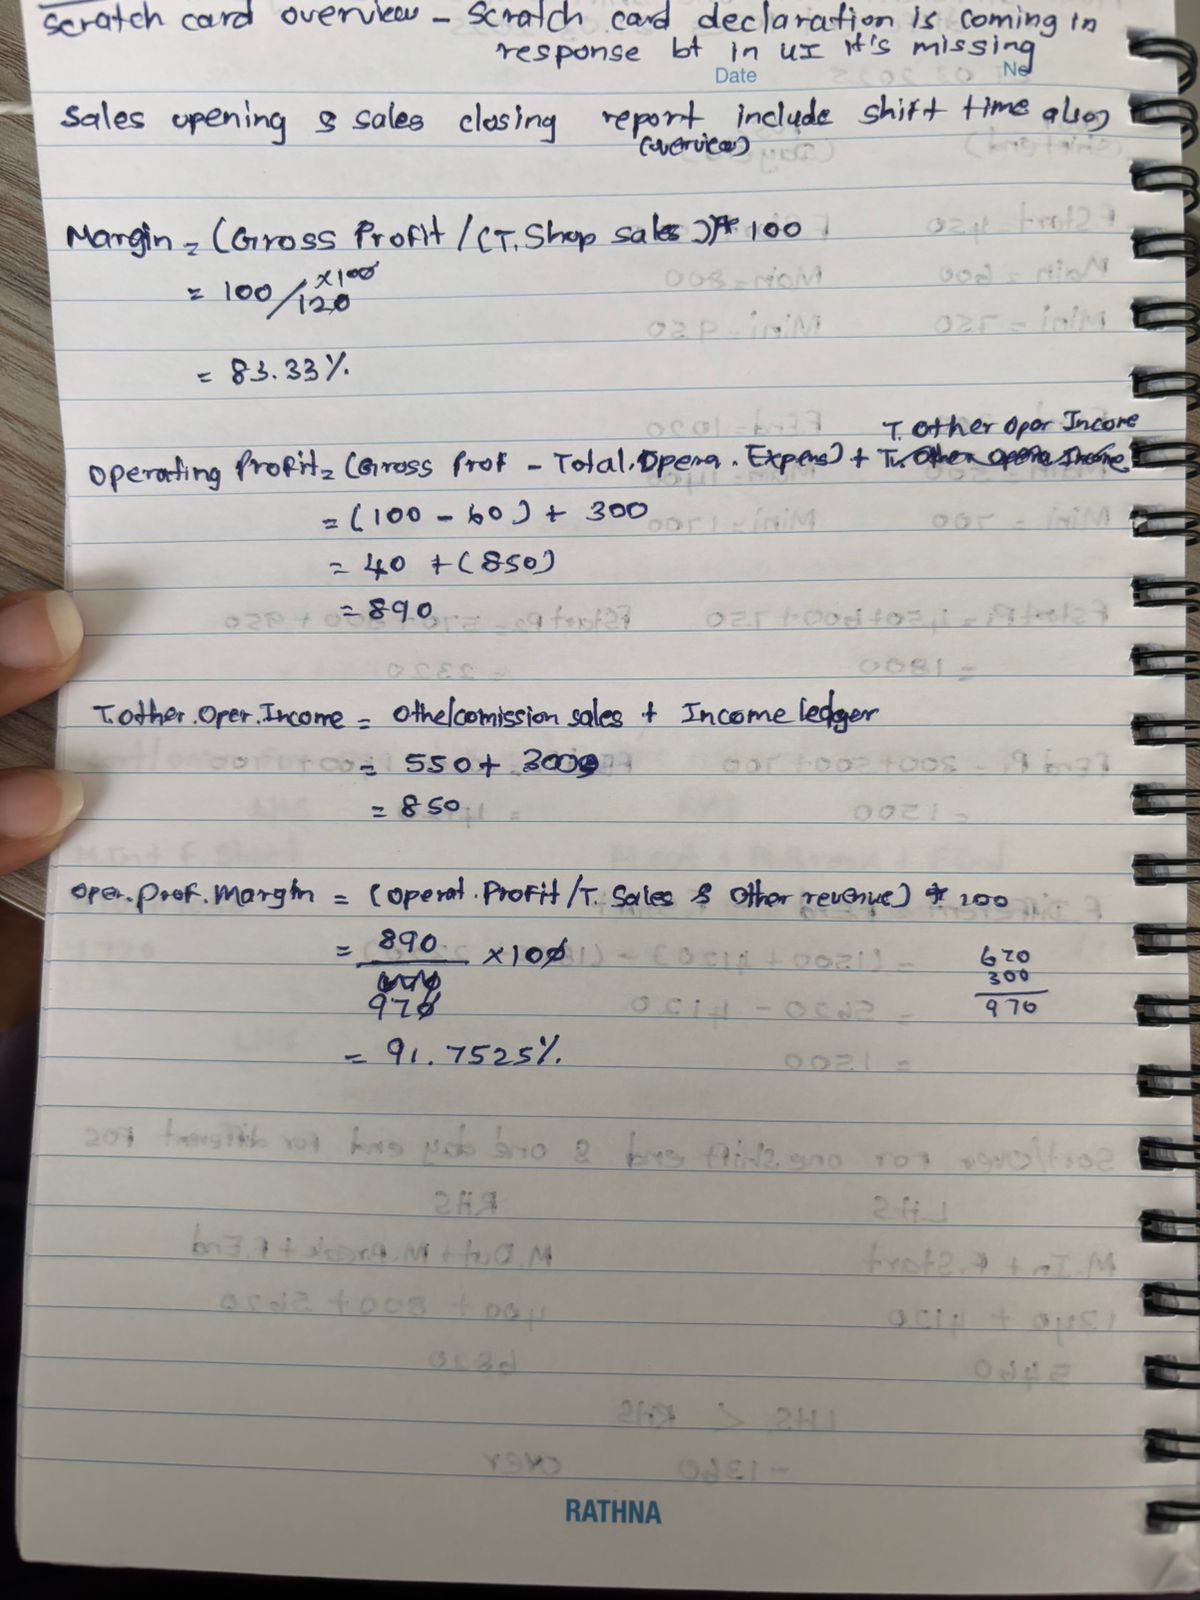 Scratch card overview - Scratch card declaration is coming in
response bt in UI it's missing
Date
No
Sales opening & sales closing report include shift time also
(overview)
Margin = (Gross Profit / (T. Shop sales)) * 100
= 100/120 ×100
= 83.33%
T. Other Oper Income
Operating Profit = (Gross Prof - Total. Opera. Expens) + T. Other Opera Income
= (100 - 60) + 300
= 40 + (850)
= 890
T.other.Oper.Income = Othe/comission sales + Income ledger
= 550 + 300
= 850
Oper.Prof.Margin = (Operat.Profit/T. Sales & Other revenue) * 100
= 890 ×100
970
620
300
970
= 91.7525%
RATHNA